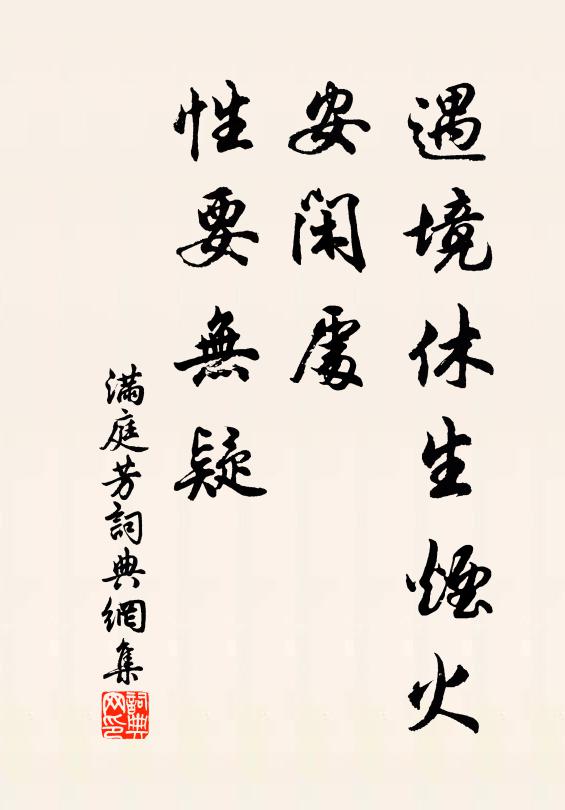 遇境休生煙火
安閑處
性要無疑
滿庭芳詞典網集
詞典
网印